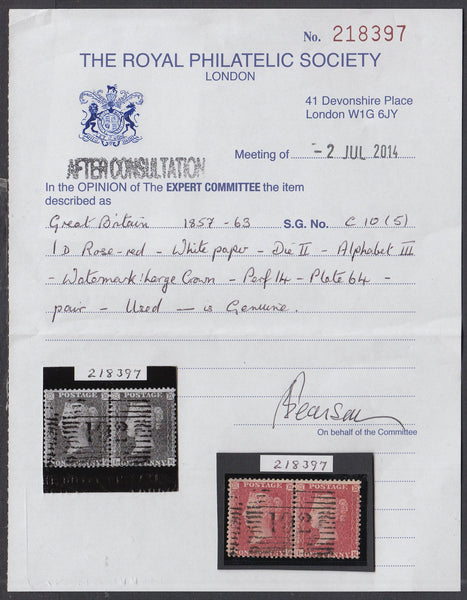 No. 218397
THE ROYAL PHILATELIC SOCIETY
LONDON
41 Devonshire Place
London W1G 6JY
Meeting of -2 JUL 2014
AFTER CONSULTATION
In the OPINION of The EXPERT COMMITTEE the item
described as
Great Britain 1857-63 S.G. No. C10(5)
1D Rose-red - White paper - Die II - Alphabet III
- Watermark: Large Crown - Perf 14 - Plate 64 -
pair - Used - is Genuine.
218397
POSTAGE POSTAGE
192
Pearson
On behalf of the Committee
218397
POSTAGE POSTAGE
192